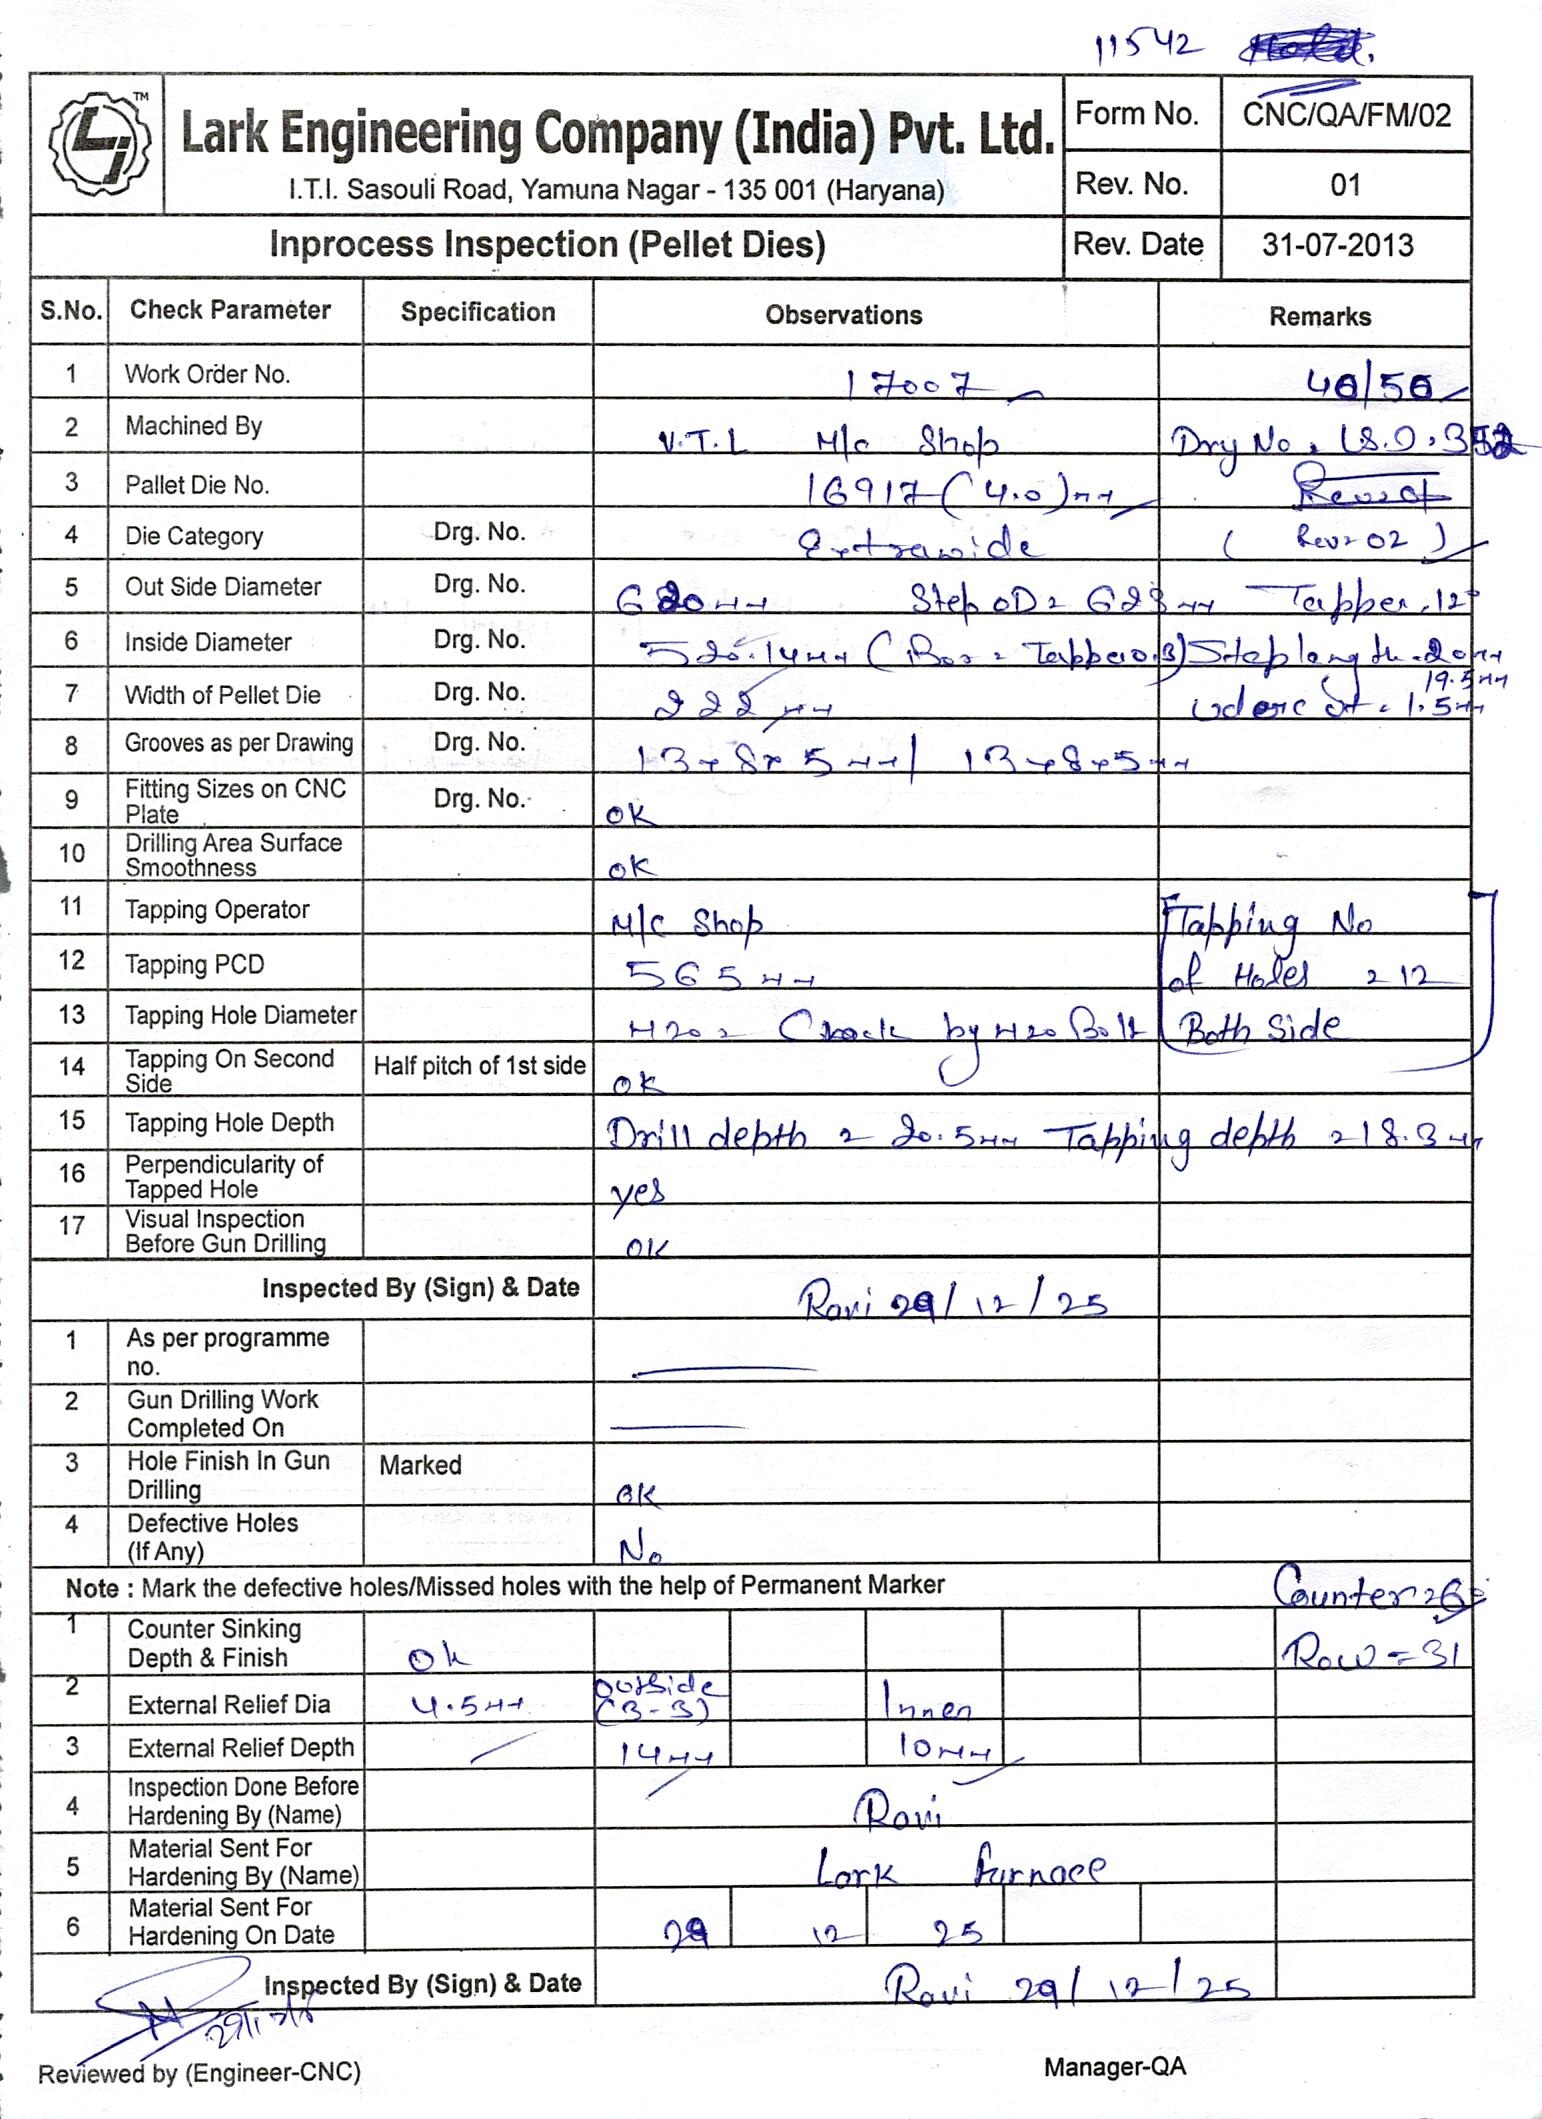 11542
TM
Lark Engineering Company (India) Pvt. Ltd.
I.T.I. Sasouli Road, Yamuna Nagar - 135 001 (Haryana)
Form No. CNC/QA/FM/02
Rev. No. 01
Inprocess Inspection (Pellet Dies) Rev. Date 31-07-2013
S.No. Check Parameter Specification Observations Remarks
1 Work Order No. 17007 40/50
2 Machined By V.T.L M/c Shop Dry No.
3 Pallet Die No. 16917 (4.0)mm
4 Die Category Drg. No. Extrawide (Rev=02)
5 Out Side Diameter Drg. No. Step OD= Tapper.12°
6 Inside Diameter Drg. No. 520.14mm Step length.20mm
19.5mm
7 Width of Pellet Die Drg. No. 222mm 1.5mm
8 Grooves as per Drawing Drg. No. 13x8x5mm/ 13x8x5mm
9 Fitting Sizes on CNC Plate Drg. No. ok
10 Drilling Area Surface Smoothness ok
11 Tapping Operator M/C Shop Tapping No
12 Tapping PCD 565mm of Holes = 12
13 Tapping Hole Diameter M20 = Check by M20 Bolt Both Side
14 Tapping On Second Side Half pitch of 1st side ok
15 Tapping Hole Depth Drill depth = 20.5mm Tapping depth = 18.3mm
16 Perpendicularity of Tapped Hole yes
17 Visual Inspection Before Gun Drilling OK
Inspected By (Sign) & Date Ravi 29/12/25
1 As per programme no.
2 Gun Drilling Work Completed On
3 Hole Finish In Gun Drilling Marked OK
4 Defective Holes (If Any) No
Note : Mark the defective holes/Missed holes with the help of Permanent Marker Counter
1 Counter Sinking Depth & Finish Ok Row = 31
2 External Relief Dia 4.5mm outside (3-3) Inner
3 External Relief Depth 14mm 10mm
4 Inspection Done Before Hardening By (Name) Ravi
5 Material Sent For Hardening By (Name) Lark furnace
6 Material Sent For Hardening On Date 29 12 25
Inspected By (Sign) & Date Ravi 29/12/25
Reviewed by (Engineer-CNC) Manager-QA